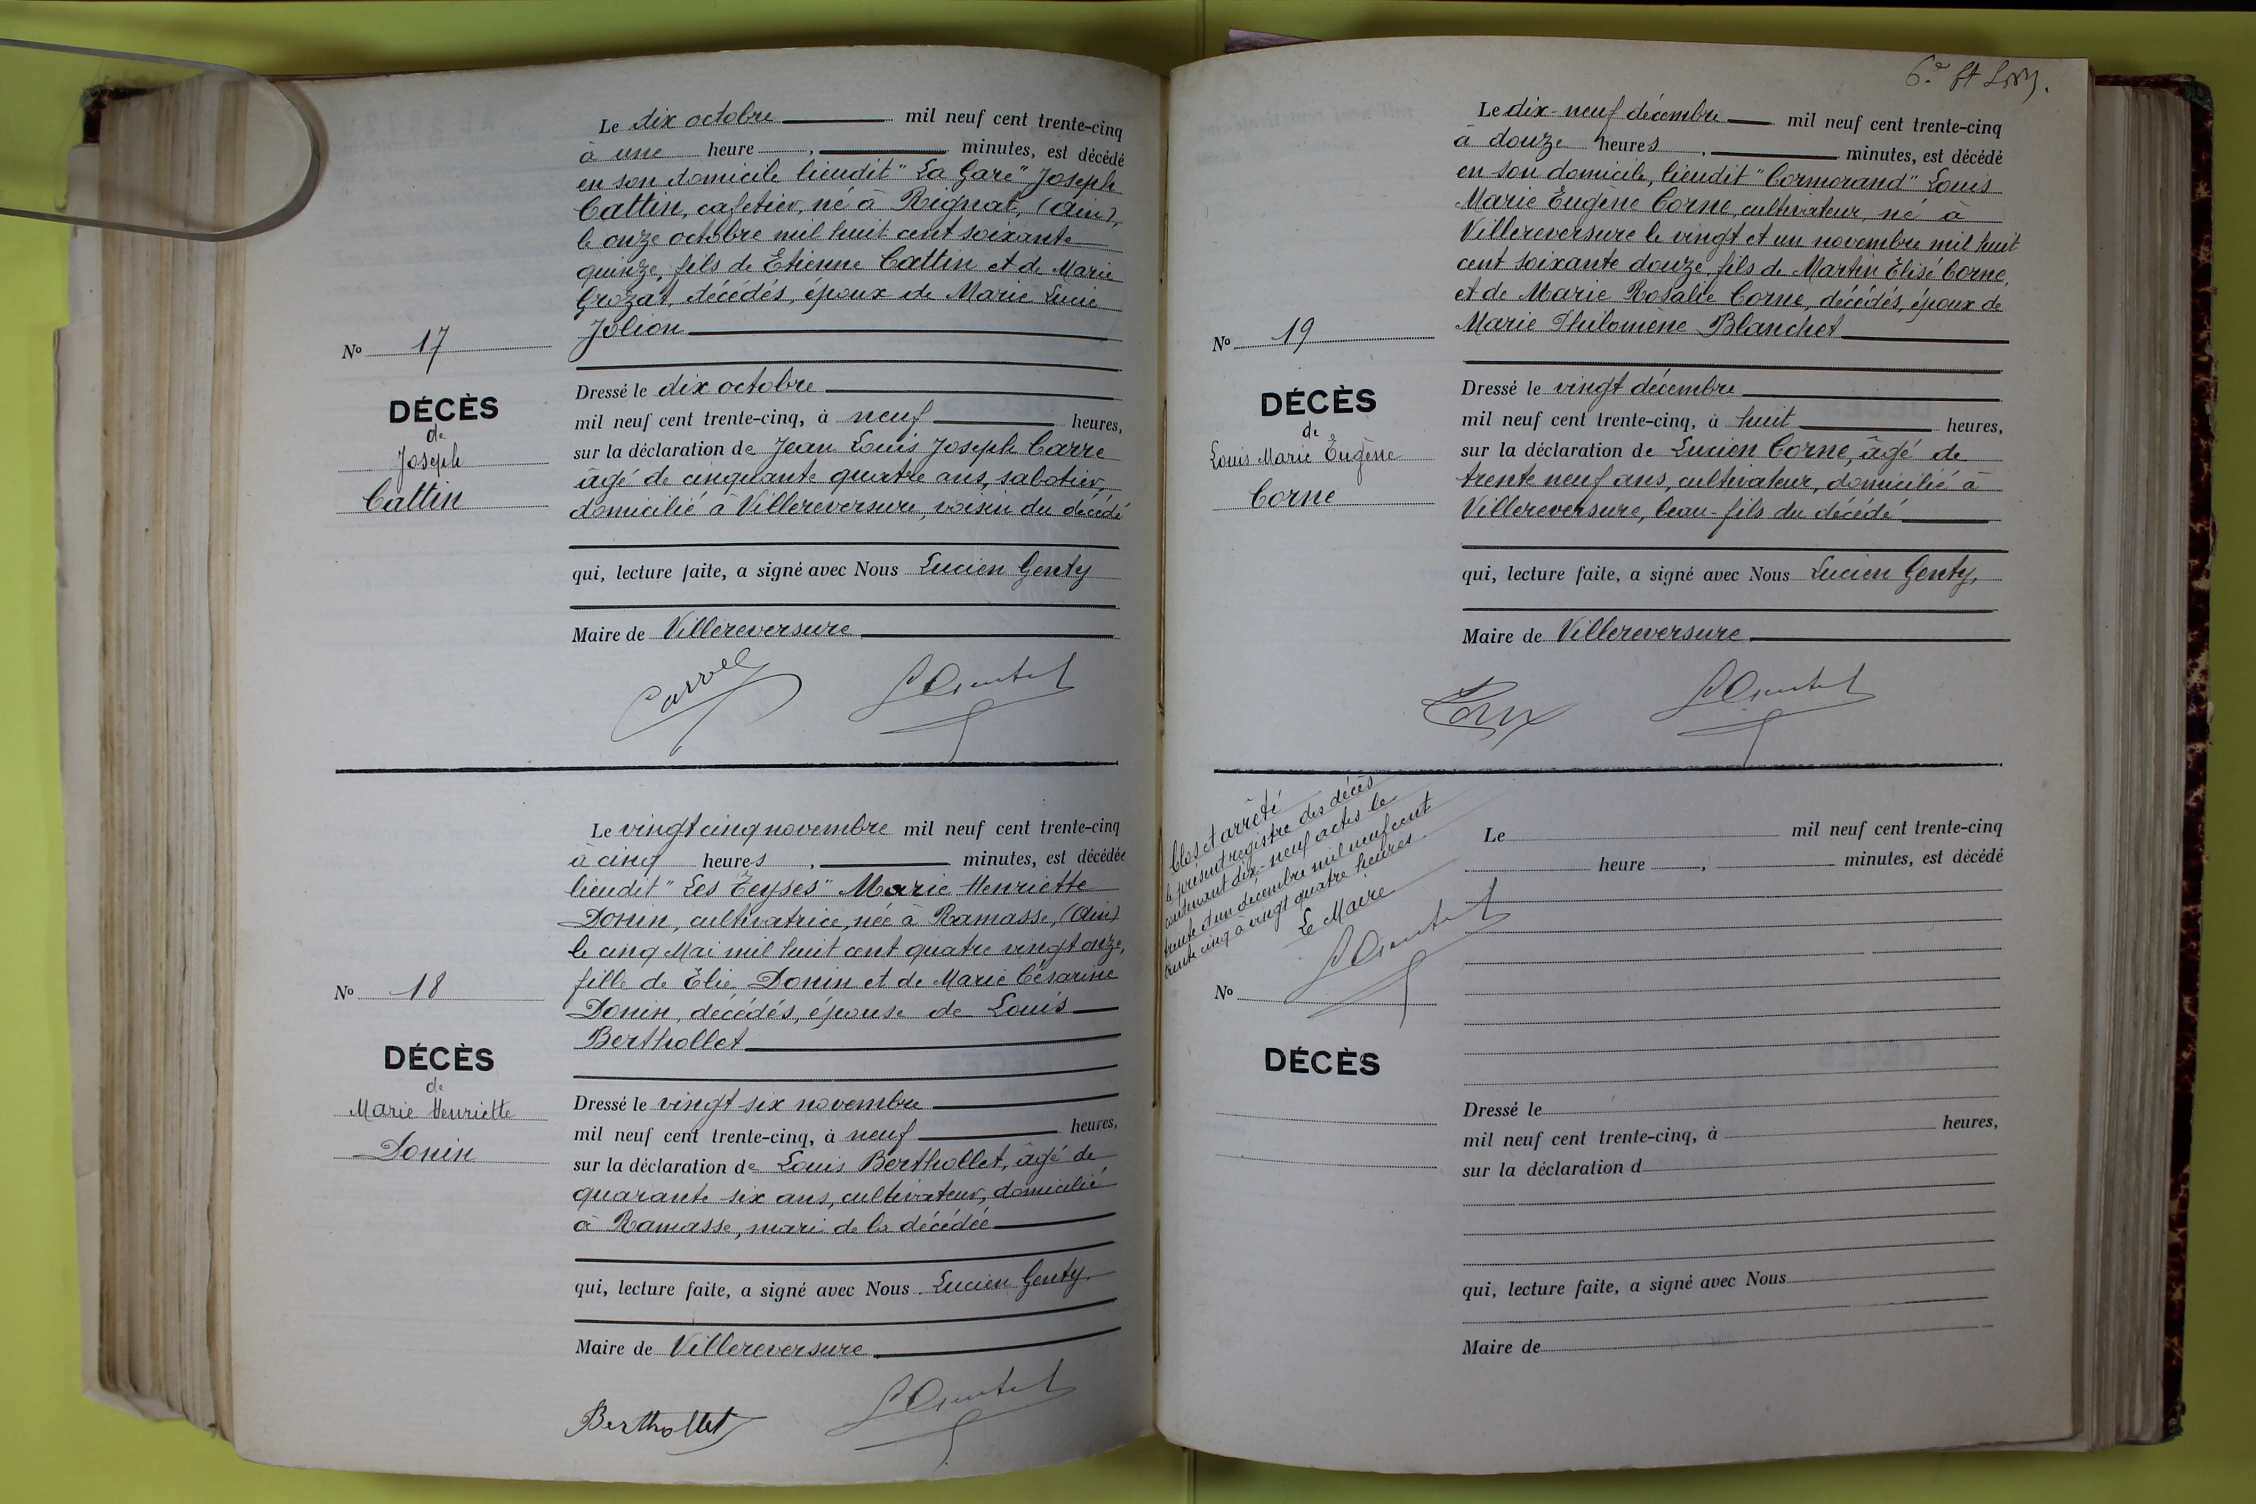 Le dix octobre mil neuf cent trente-cinq
à une heure , minutes, est décédé
en son domicile lieudit "La Gare" Joseph
Cattin, cafetier, né à Rignat, (Ain),
le onze octobre mil huit cent soixante
quinze, fils de Etienne Cattin et de Marie
Crozat, décédés, époux de Marie Lucie
Jolion
No 17
DÉCÈS
de
Joseph
Cattin
Dressé le dix octobre
mil neuf cent trente-cinq, à neuf heures,
sur la déclaration de Jean Louis Joseph Carre
âgé de cinquante quatre ans, sabotier,
domicilié à Villereversure, voisin du décédé
qui, lecture faite, a signé avec Nous Lucien Genty
Maire de Villereversure
Le vingt cinq novembre mil neuf cent trente-cinq
à cinq heures , minutes, est décédée
lieudit "Les Teyses" Marie Henriette
Donin, cultivatrice, née à Ramasse, (Ain)
le cinq Mai mil huit cent quatre vingt onze,
fille de Elie Donin et de Marie Césarine
Donin, décédés, épouse de Louis
Berthollet
No 18
DÉCÈS
de
Marie Henriette
Donin
Dressé le vingt six novembre
mil neuf cent trente-cinq, à neuf heures,
sur la déclaration de Louis Berthollet, âgé de
quarante six ans, cultivateur, domicilié
à Ramasse, mari de la décédée
qui, lecture faite, a signé avec Nous Lucien Genty.
Maire de Villereversure
Berthollet
Le dix-neuf décembre mil neuf cent trente-cinq
à douze heures , minutes, est décédé
en son domicile, lieudit "Cormorand" Louis
Marie Eugène Corne, cultivateur, né à
Villereversure le vingt et un novembre mil huit
cent soixante douze, fils de Martin Elisé Corne,
et de Marie Rosalie Corne, décédés, époux de
Marie Philomène Blanchet
No 19
DÉCÈS
de
Louis Marie Eugène
Corne
Dressé le vingt décembre
mil neuf cent trente-cinq, à huit heures,
sur la déclaration de Lucien Corne, âgé de
trente neuf ans, cultivateur, domicilié à
Villereversure, beau-fils du décédé
qui, lecture faite, a signé avec Nous Lucien Genty,
Maire de Villereversure
Clos et arrêté
le présent registre des décès
contenant dix-neuf actes le
trente et un décembre mil neuf cent
trente cinq à vingt quatre heures.
Le Maire
Le mil neuf cent trente-cinq
heure , minutes, est décédé
No
DÉCÈS
Dressé le
mil neuf cent trente-cinq, à heures,
sur la déclaration d
qui, lecture faite, a signé avec Nous
Maire de